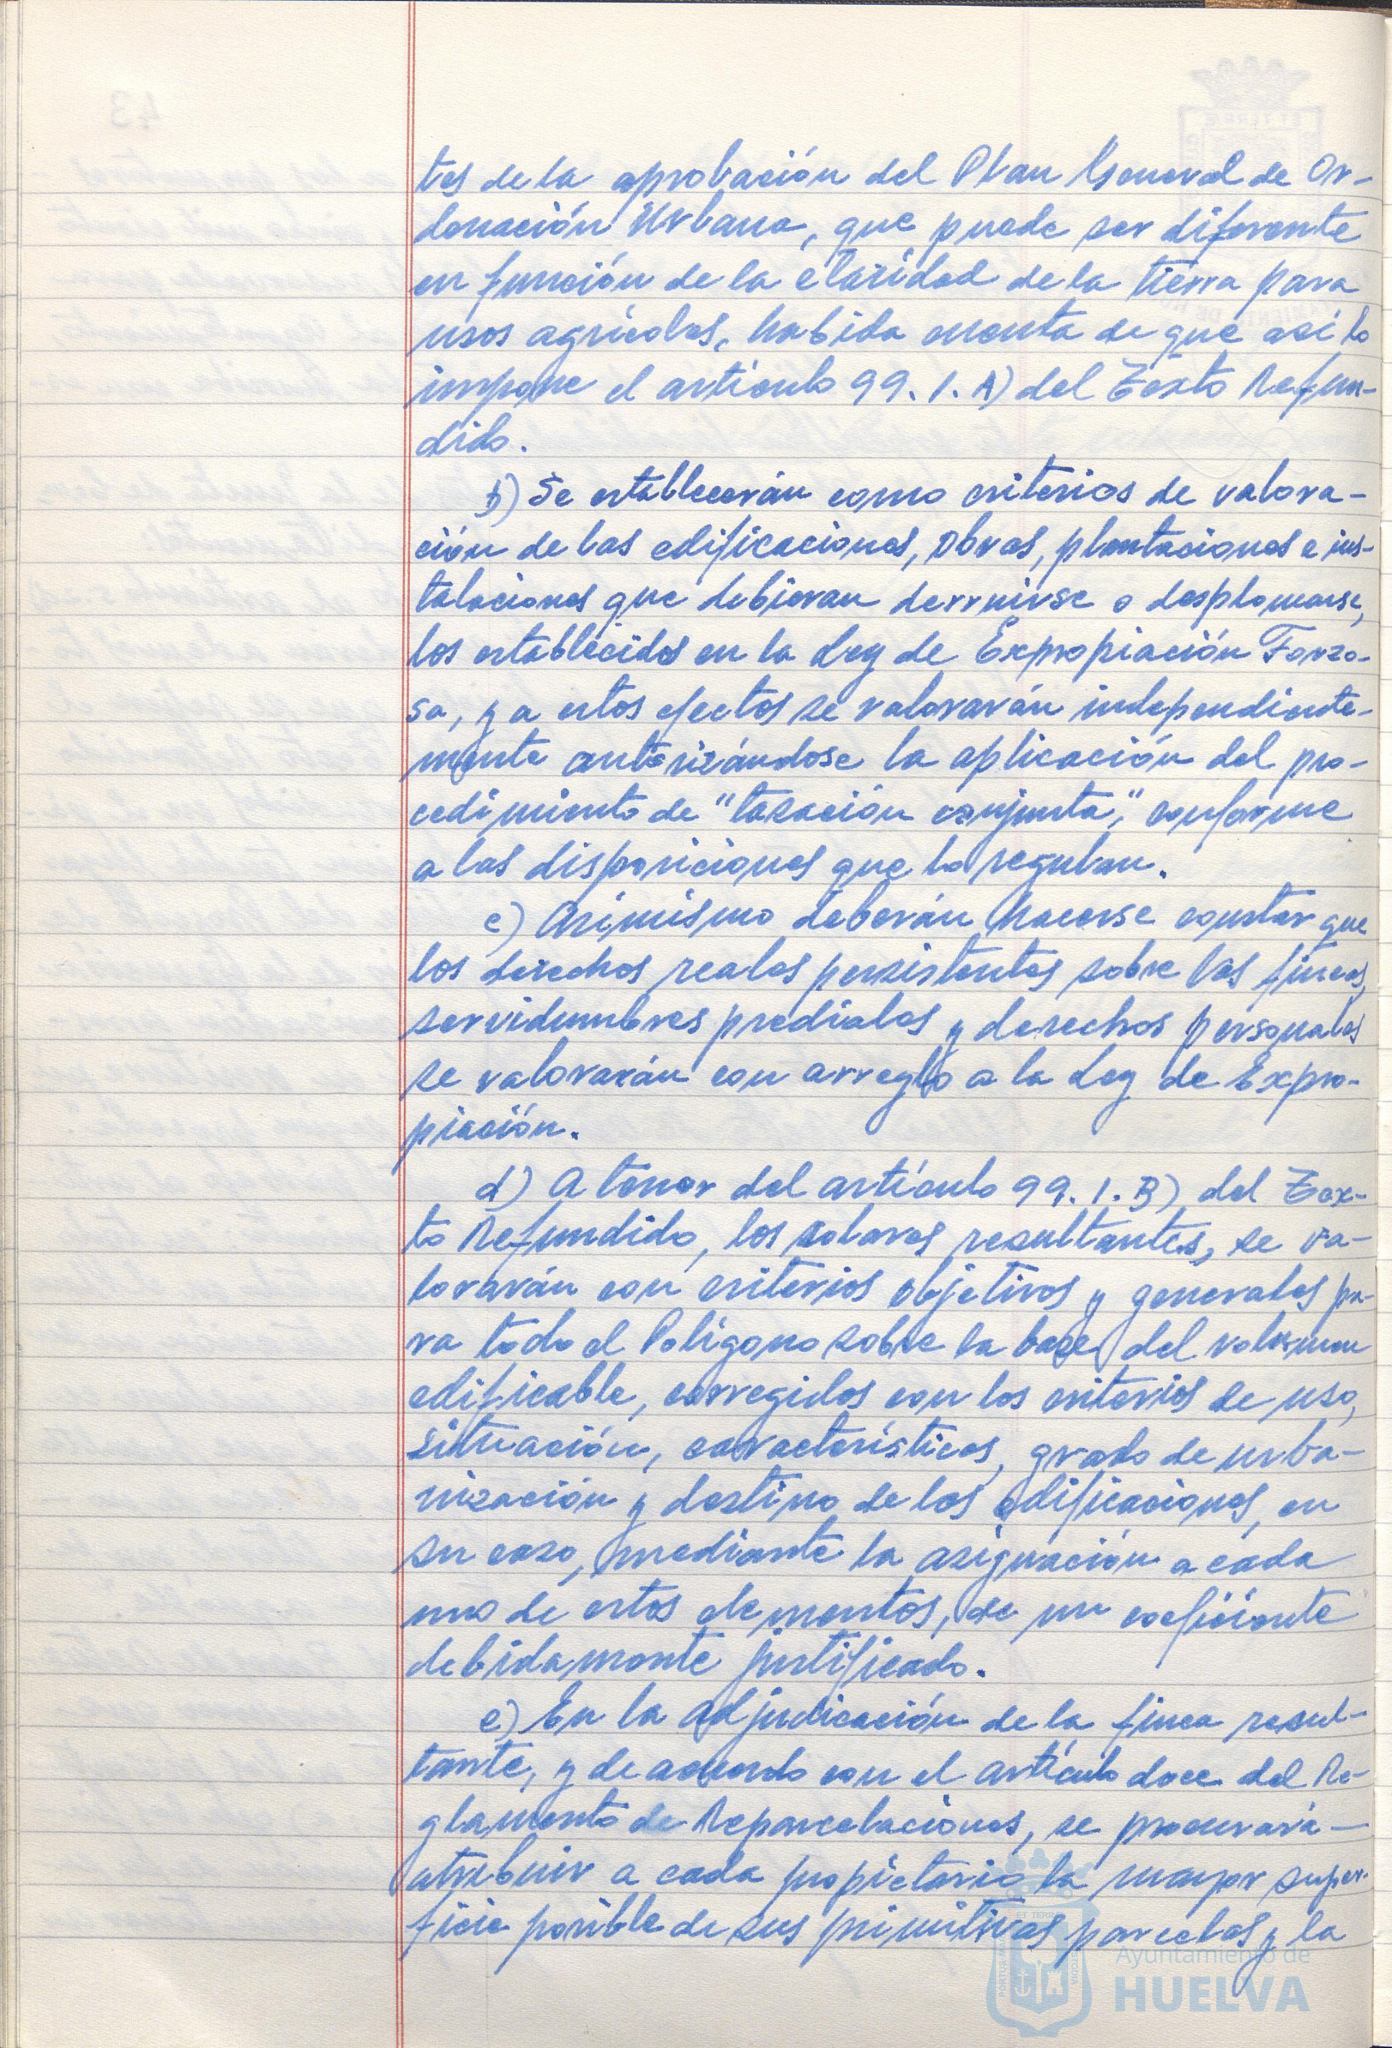 tes de la aprobación del Plan General de Or-
denación Urbana, que puede ser diferente
en función de la claridad de la tierra para
usos agrícolas, habida cuenta de que así lo
impone el artículo 99.1.A) del Texto Refun-
dido.
b) Se establecerán como criterios de valora-
ción de las edificaciones, obras, plantaciones e ins-
talaciones que debieran derruirse o desplomarse,
los establecidos en la Ley de Expropiación Forzo-
sa, y a estos efectos se valorarán independiente-
mente autorizándose la aplicación del pro-
cedimiento de "tasación conjunta", conforme
a las disposiciones que lo regulan.
c) Asimismo deberán hacerse constar que
los derechos reales persistentes sobre las fincas,
servidumbres prediales y derechos personales
se valorarán con arreglo a la Ley de Expro-
piación.
d) A tenor del artículo 99.1.B) del Tex-
to Refundido, los solares resultantes, se va-
lorarán con criterios objetivos y generales pa-
ra todo el Polígono sobre la base del volumen
edificable, corregidos con los criterios de uso,
situación, características, grado de urba-
nización y destino de las edificaciones, en
su caso, mediante la asignación a cada
uno de estos elementos, de un coeficiente
debidamente justificado.
e) En la adjudicación de la finca resul-
tante, y de acuerdo con el artículo doce del Re-
glamento de Reparcelaciones, se procurará
atribuir a cada propietario la mayor super-
ficie posible de sus primitivas parcelas y la
Ayuntamiento de
HUELVA